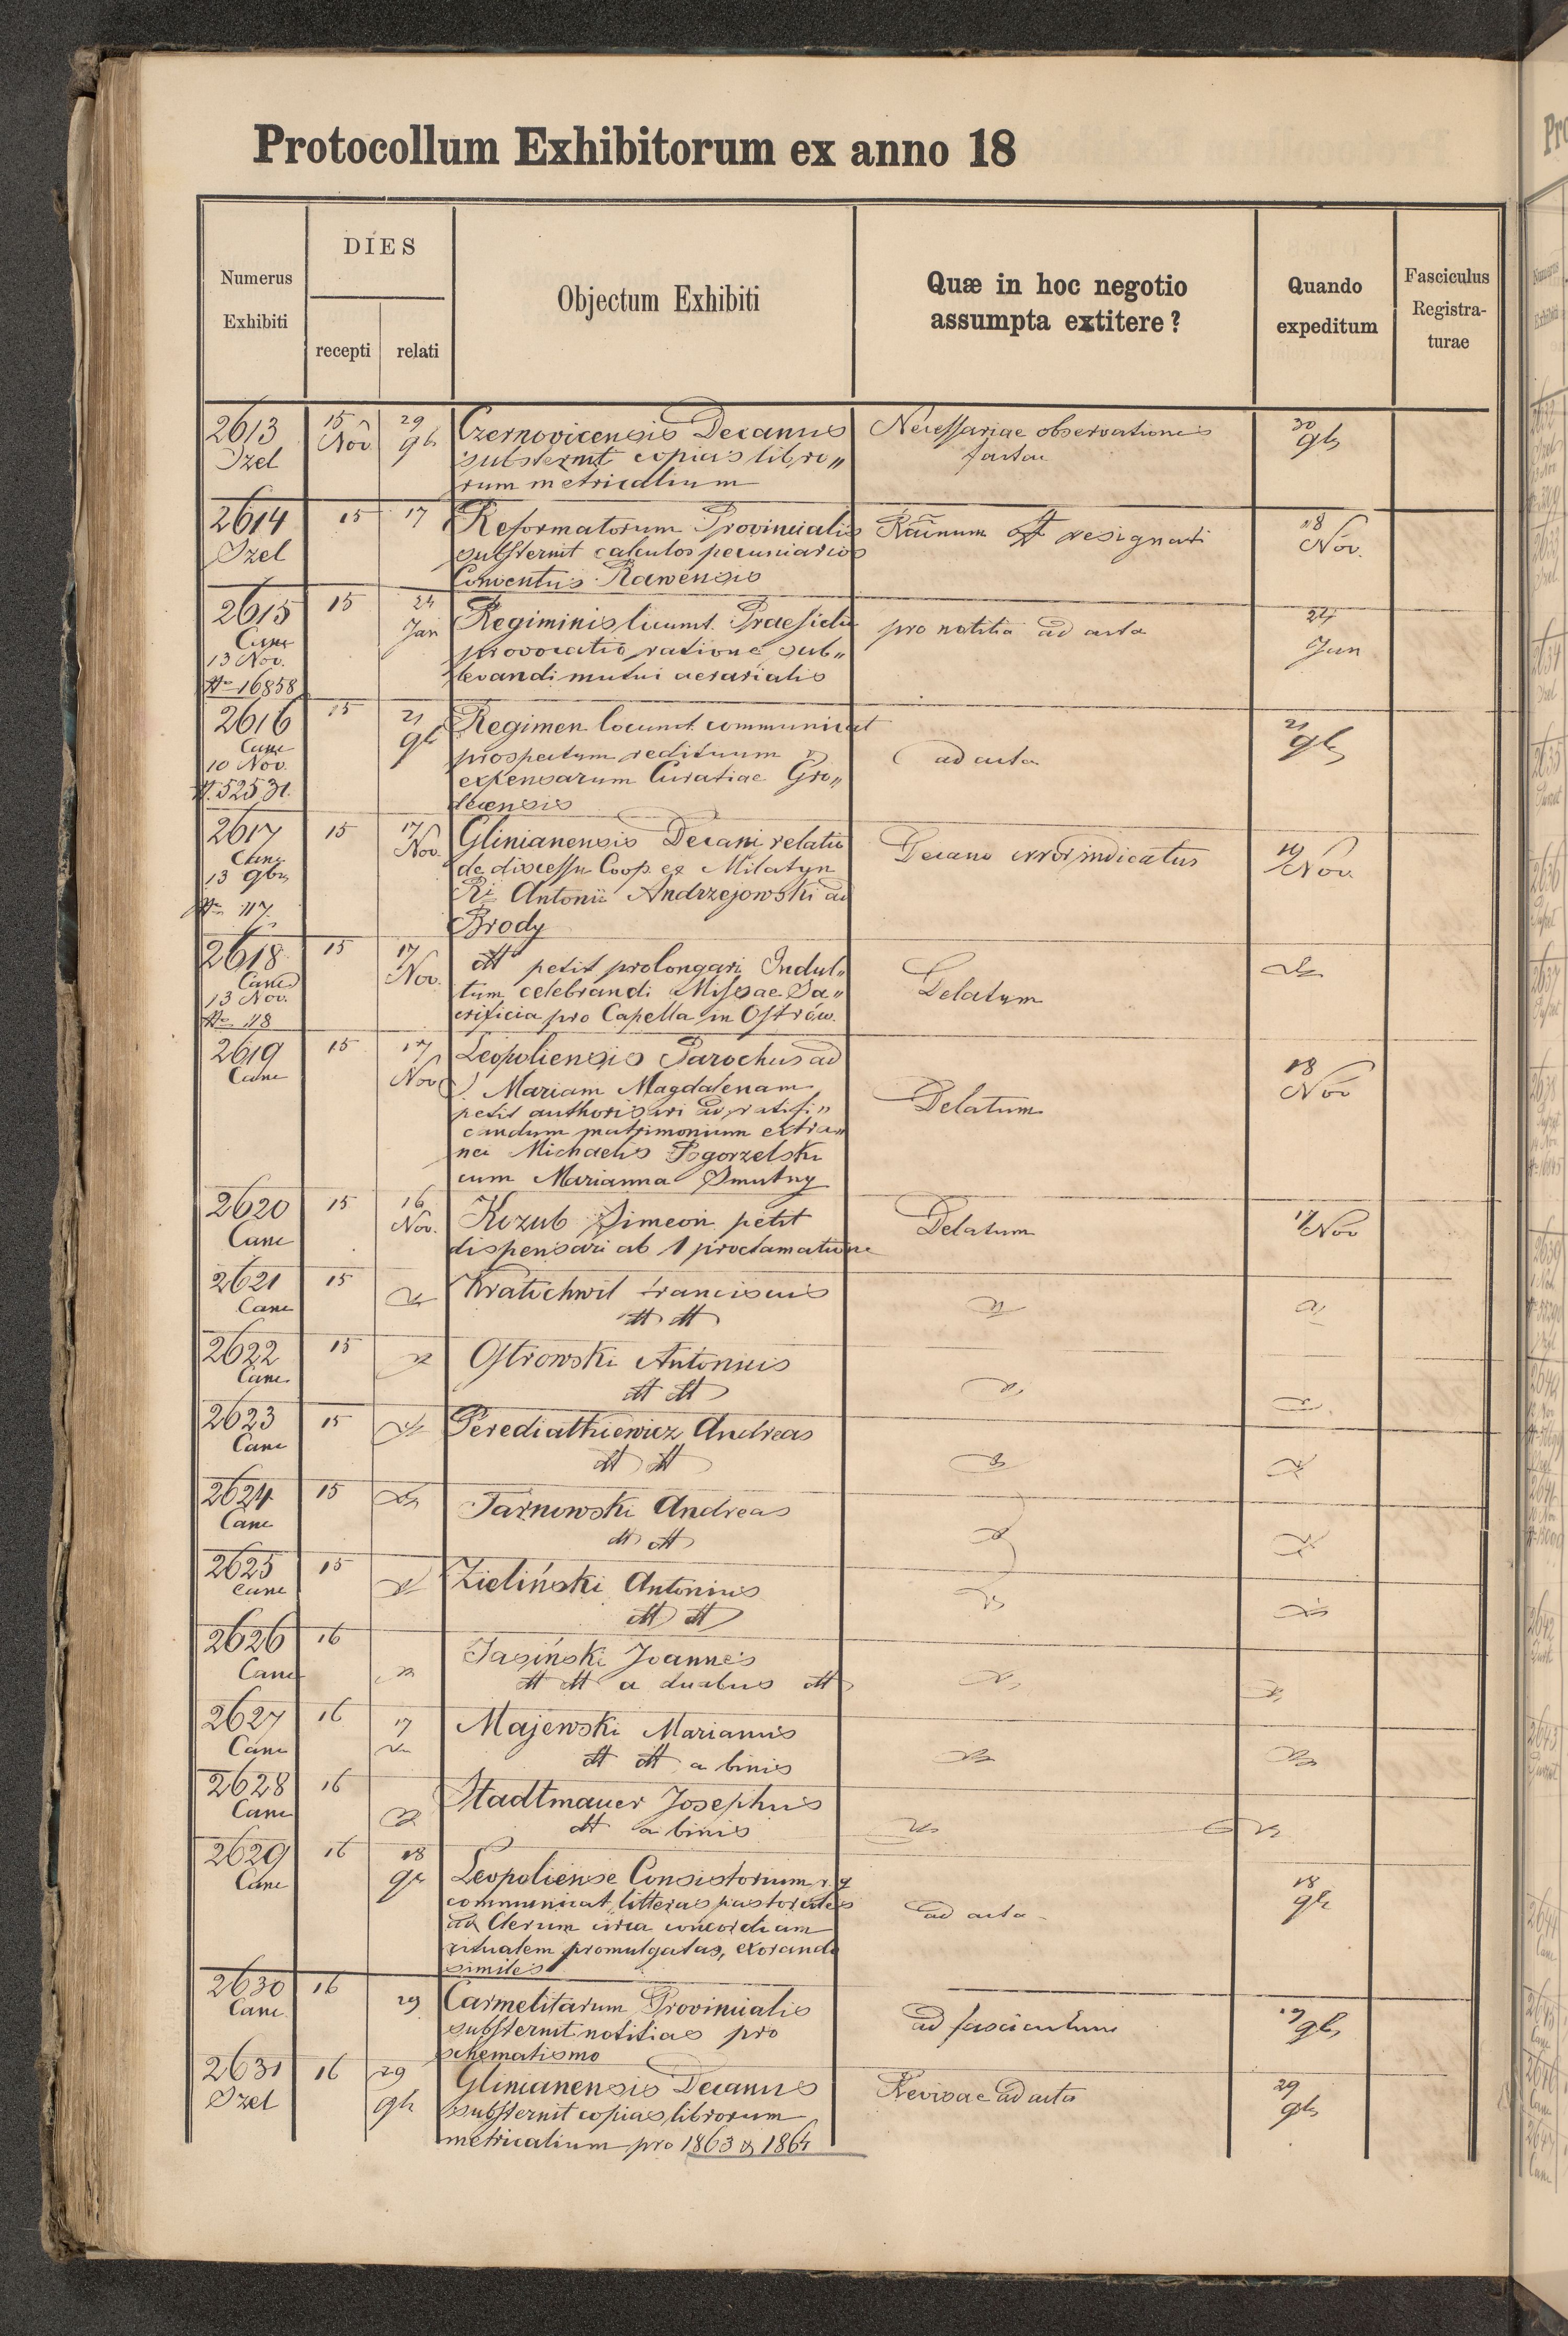 Protocollum Exhibitorum ex anno 18
Numerus
Exhibiti
DIES
recepti
relati
Objectum Exhibiti
Quæ in hoc negotio
assumpta extitere?
Quando
expeditum
Fasciculus
Registra-
turae
2613
Szel
15
Nov
29
9b
Czernovicensis Decanus
substernit copias libro„
rum metricalium
Necessariae observationes
factae
30
9b
2614
Szel
15
17
Reformatorum Provincialis
substernit calculos pecuniarios
Conventus Rawensis
resignati
18
Nov.
2615
Canc
13 Nov.
N 16858
15
24
Jan
Regiminis locumt. Praesidii
provocatio ratione sub„
levandi mutui aerarialis
pro notitia ad acta
24
Jan
2616
Canc
10 Nov.
N. 52531.
15
21
9b
Regimen locumt. communicat
prospectum redituum &
expensarum Curatiae Gro„
decensis
ad acta
21
9b
2617
Canc
13 9br
N 117.
15
17
Nov.
Glinianensis Decani relatio
de discessu Coop. ex Milatyn
Ri Antonii Andrzejowski ad
Brody
Decano error indicatus
19
Nov.
2618
Canc
13 Nov.
N 118
15
17
Nov.
dtt petit prolongari Indul„
tum celebrandi Missae Sa„
crificia pro Capella in Ostrów.
Delatum
2619
Canc
15
17
Nov
Leopoliensis Parochus ad
S. Mariam Magdalenam
petit authorisari ad ratifi„
candum matrimonium extra„
nei Michaelis Pogorzelski
cum Marianna Smutny
Delatum
18
Nov
2620
Canc
15
16
Nov.
Kozub Simeon petit
dispensari ab 1 proclamatione
Delatum
17 Nov
2621
Canc
15
Kratochwil Franciscus
dtt dtt
2622
Canc.
15
Ostrowski Antonius
dtt dtt
2623
Canc
15
Perediatkiewicz Andreas
dtt dtt
2624
Canc
15
Tarnowski Andreas
dtt dtt
2625
Canc
15
Zieliński Antonius
dtt dtt
2626
Canc
16
Jasiński Joannes
dtt dtt a duabus dtt
2627
Canc
16
17
Majewski Marianus
dtt dtt a binis
2628
Canc
16
Stadtmauer Josephus
dtt a binis
2629
Canc
16
18
9b
Leopoliense Consistorium r. g
communicat litteras pastorales
ad Clerum circa concordiam
ritualem promulgatas, exorando
similes
ad acta
18
9b
2630
Canc
16
29
Carmelitarum Provincialis
substernit notitias pro
schematismo
ad fasciculum
29
9b
2631
Szel
16
29
9b
Glinianensis Decanus
substernit copias librorum
metricalium pro 1863 & 1864
Revisae ad acta
29
9b